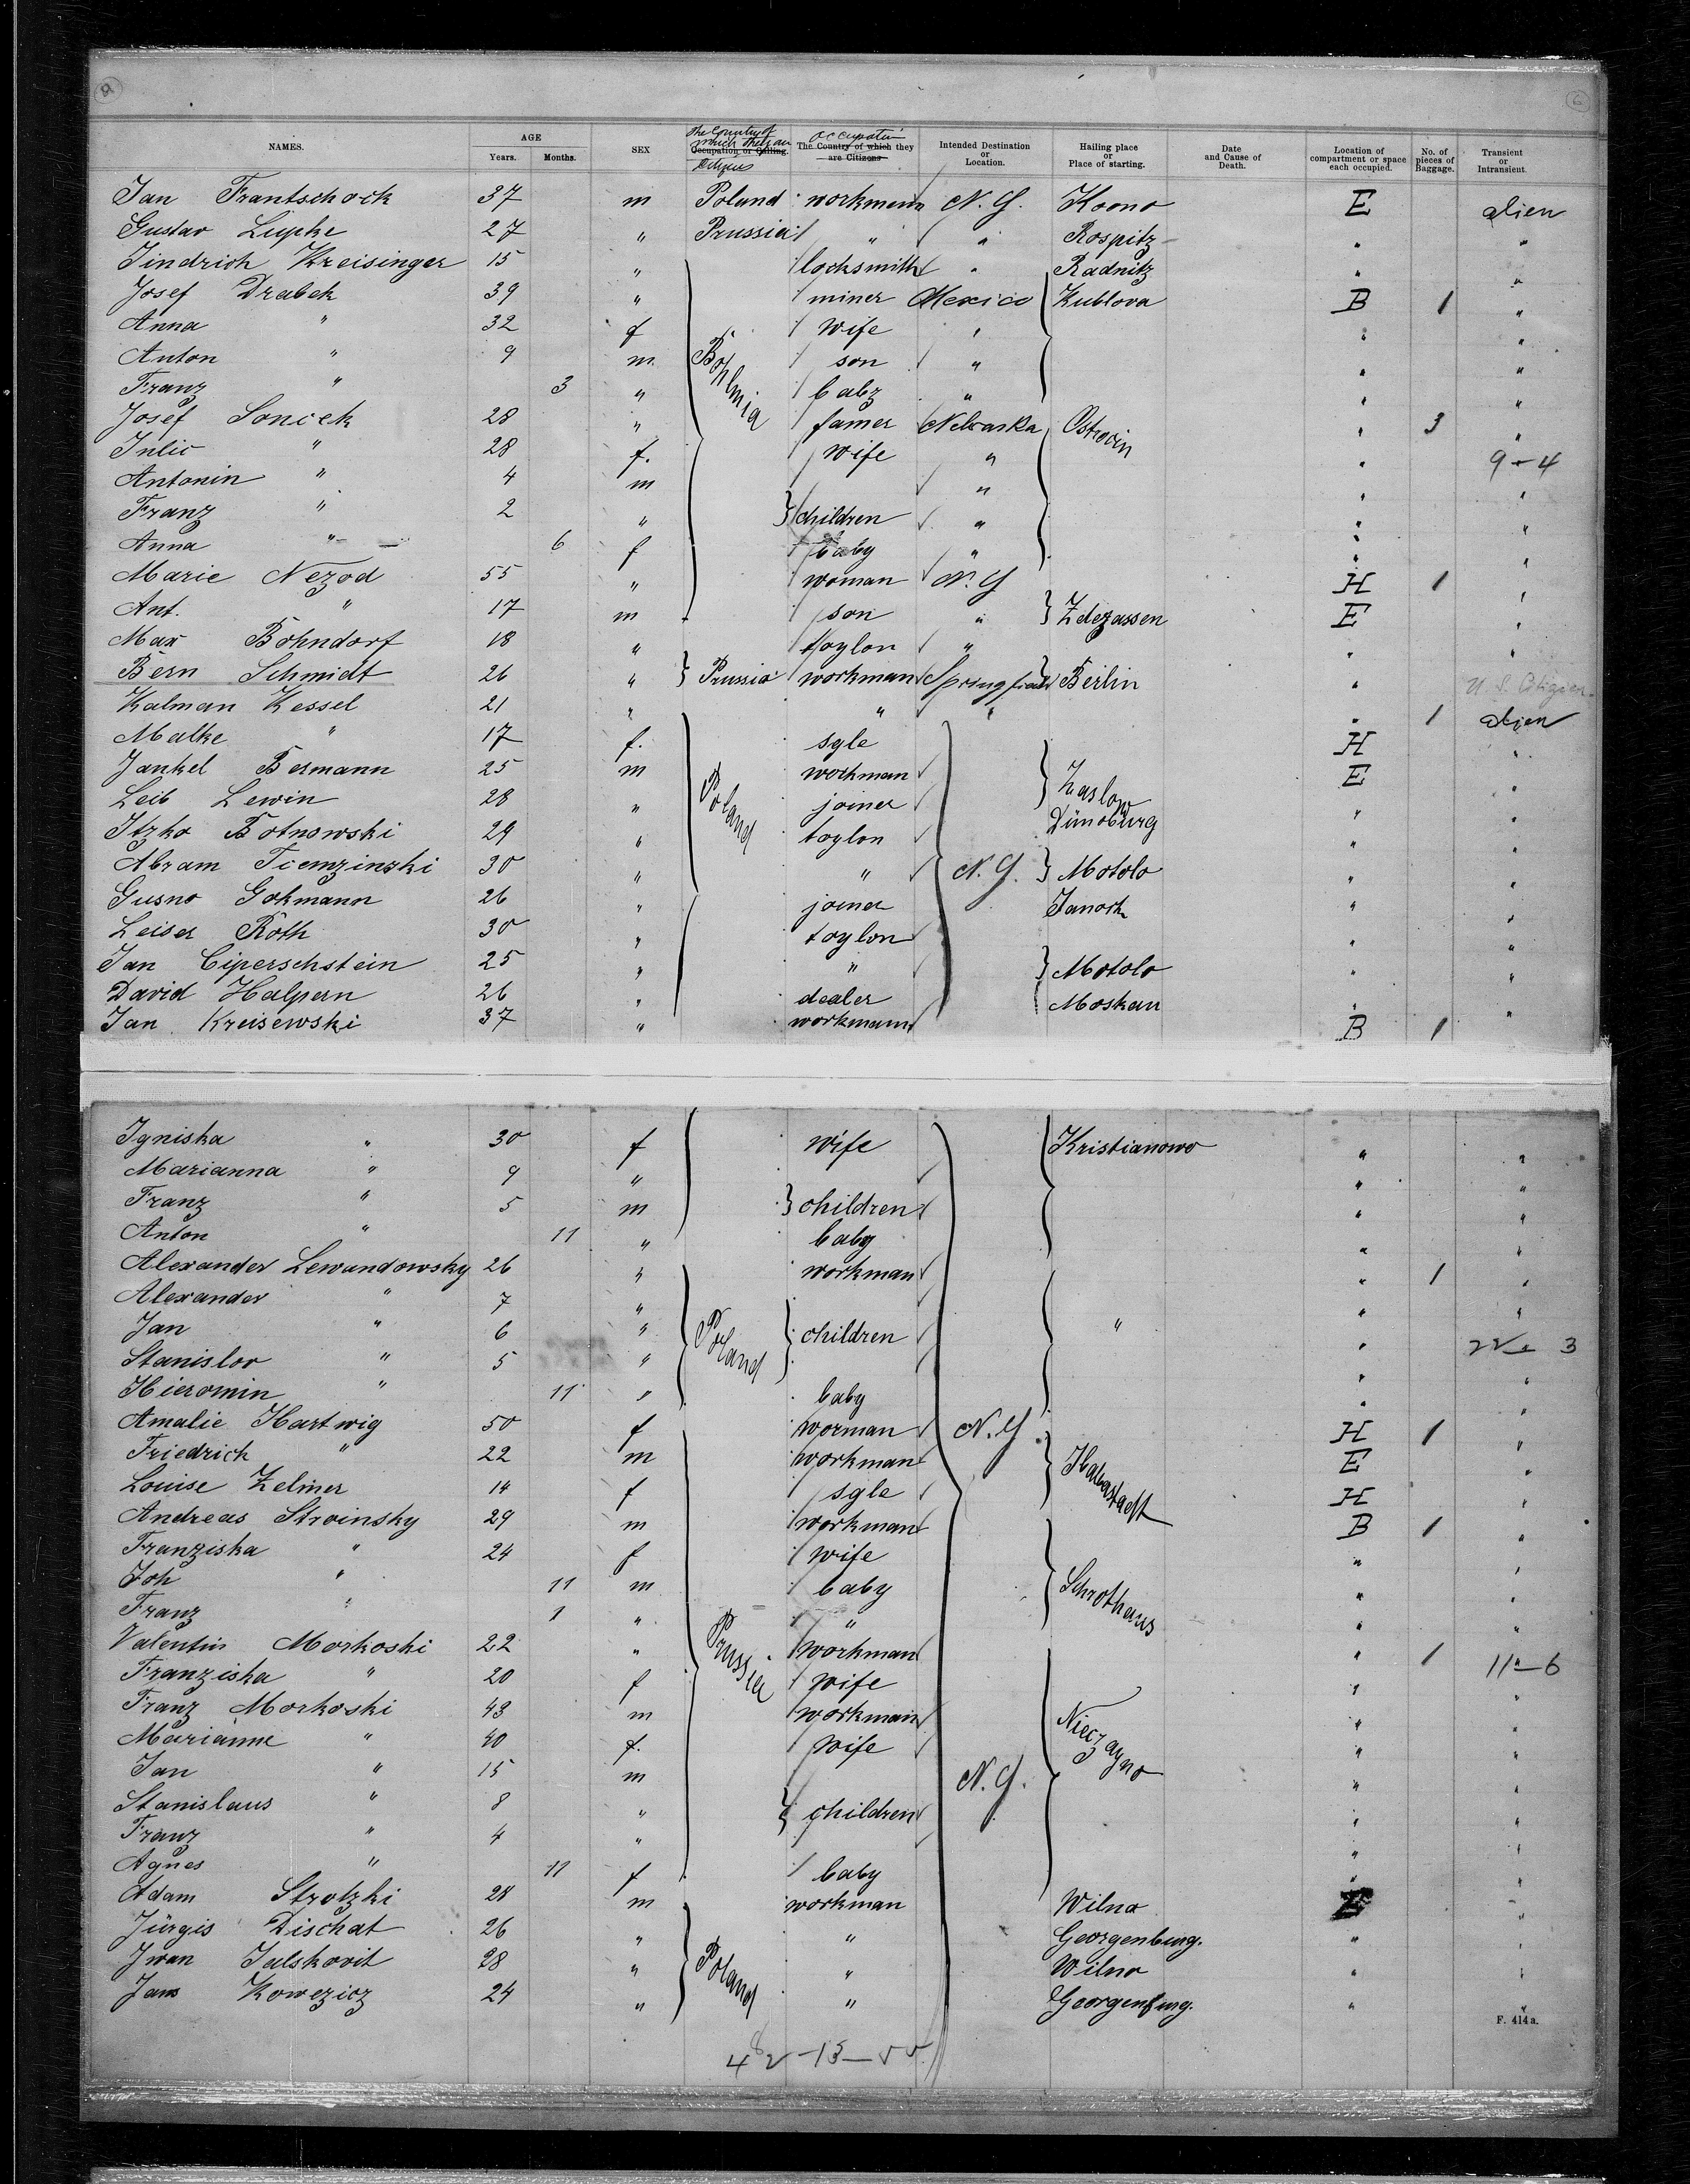 NAMES. AGE Years. Months. SEX The Country of which they are Citizens Occupation or Calling. Occupation The Country of which they are Citizens Intended Destination or Location. Hailing place or Place of starting. Date and Cause of Death. Location of compartment or space each occupied. No. of pieces of Baggage. Transient or Intransient.
Jan Frantschock 37 m Poland workmen N.Y. Kowno E alien
Gustav Lupke 27 " Prussia " " Rospitz " "
Jindrich Kreisinger 15 " locksmith " Radnitz " "
Josef Drabek 39 " miner Mexico Kublova B 1 "
Anna " 32 f wife " " "
Anton " 9 m son " " "
Franz " 3 " Bohmia baby " " "
Josef Soncek 28 " famer Nebraska Ostrovin " 3 "
Julie " 28 f. wife " " 9-4
Antonin " 4 m " " "
Franz " 2 " children " " "
Anna " 6 f baby " " "
Marie Nezod 55 " woman N.Y H 1 "
Ant. " 17 m son " Zdezassen E "
Max Bohndorf 18 " taylon " " "
Bern Schmidt 26 " Prussia workman Springfield Berlin " U.S. Citizen
Kalman Kessel 21 " " " " 1 alien
Malke " 17 f. sgle H "
Jankel Bermann 25 m workman Zaslow E "
Leib Lewin 28 " Poland joiner Dünoburg " "
Itzko Botnowski 29 " taylon " "
Abram Ticmzinski 30 " " N.Y. Motolo " "
Gusno Gokmann 26 " joiner Janock " "
Leiser Roth 30 " taylon " "
Jan Ciperschstein 25 " " Motolo " "
David Halpern 26 " dealer Moskau " "
Jan Kreisewski 37 " workmann B 1
Igniska " 30 f wife Kristianowo " "
Marianna " 9 " " "
Franz " 5 m children " "
Anton " 11 " baby " "
Alexander Lewandowsky 26 " workman " 1 "
Alexander " 7 " " " "
Jan " 6 " Poland children " 22 3
Stanislov " 5 " " "
Hieromin " 11 " baby " "
Amalie Hartwig 50 f worman N.Y. H 1 "
Friedrich " 22 m workman Halbastadt E "
Louise Zelmer 14 f sgle H "
Andreas Stroinsky 29 m workman B 1 "
Franziska " 24 f wife " "
Joh " 11 m baby Schrothaus " "
Franz " 1 " " " "
Valentin Morkoski 22 " Prussia workman " 1 11-6
Franziska " 20 f wife " "
Franz Morkoski 43 m workman Nieczayno " "
Marianne " 40 f. wife " "
Jan " 15 m N.Y. " "
Stanislaus " 8 " children " "
Franz " 4 " " "
Agnes " 11 f baby " "
Adam Strotzki 28 m workman Wilna E "
Jürgis Dischat 26 " " Georgenburg. " "
Jwan Julskovit 28 " Poland " Wilna " "
Jans Kowezicz 24 " " Georgenburg. " "
F. 414 a.